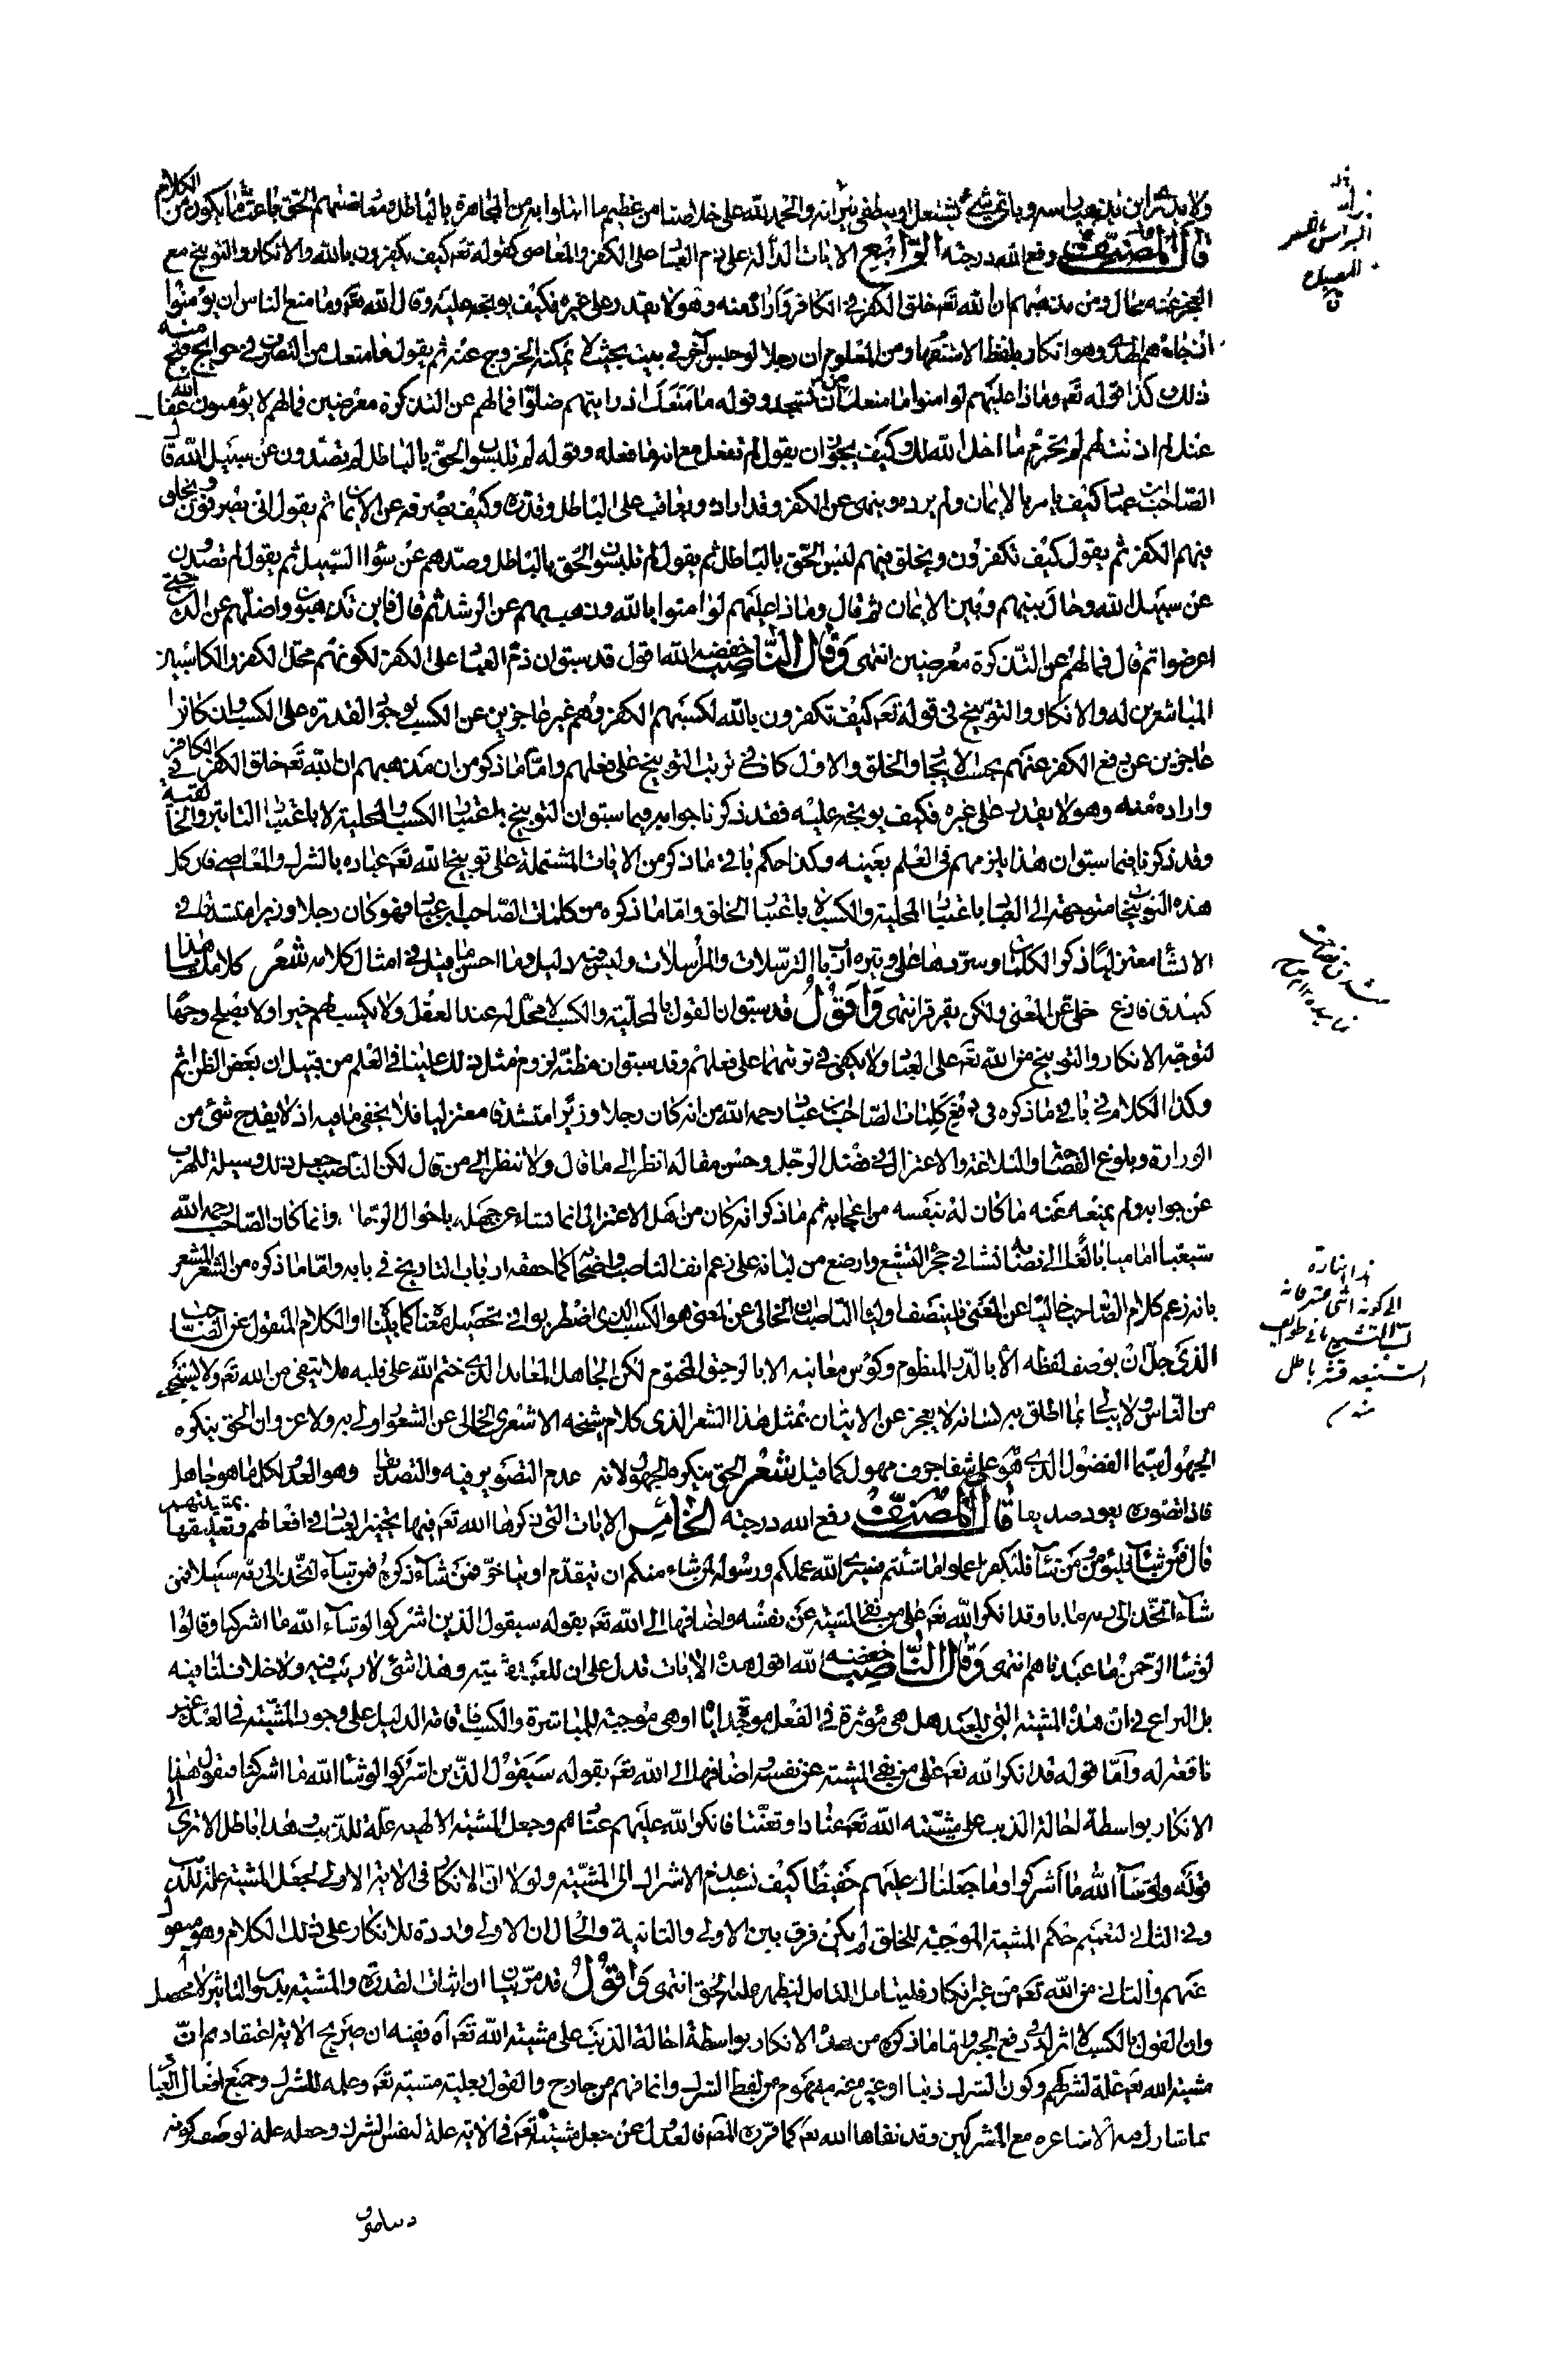 ولا يدري اين يذهب براسه وباي شيء يشتعل او ينطفي نيرانه والحمد لله على خلاصنا من عظيم ما ابتلوا به من المجاهرة بالباطل ومعاضتهم الحق باعتام ما يكون من الكلام
قال المصنف رفع الله درجته الرابع الايات الدالة على ذم العباد على الكفر والمعاصي كقوله تعم كيف تكفرون بالله والانكار والتوبيخ مع
العجز عنه محال ومن مذهبهم ان الله تعم خلق الكفر في الكافر واراده منه وهو لا يقدر على غيره فكيف يوبخه عليه وقال الله تعم وما منع الناس ان يؤمنوا
اذ جاءهم الهدى وهو انكار بلفظ الاستفهام ومن المعلوم ان رجلا لو حبس آخر في بيت بحيث لا يمكنه الخروج عنه ثم يقول ما منعك من التصرف في حوايجي قبح منه
ذلك وكذا قوله تعم وماذا عليهم لو امنوا ما منعك ان تسجد وقوله ما منعك اذ رايتهم ضلوا فما لهم عن التذكرة معرضين فما لهم لا يؤمنون عفا الله
عنك لم اذنت لهم لم تحرم ما احل الله لك وكيف يجوز ان يقول لم تفعل مع انه ما فعله وقوله لم تلبسون الحق بالباطل لم تصدون عن سبيل الله قا
الصاحب بن عباد كيف يامر بالايمان ولم يرده وينهى عن الكفر وقد اراده ويعاقب على الباطل وقدره وكيف يصرفه عن الايمان ثم يقول انى يصرفون ويخلق
فيهم الكفر ثم يقول كيف تكفرون ويخلق فيهم لبس الحق بالباطل ثم يقول لم تلبسون الحق بالباطل وصدهم عن سواء السبيل ثم يقول لم تصدون
عن سبيل الله وحال بينهم وبين الايمان ثم قال وماذا عليهم لو امنوا بالله وذهب بهم عن الرشد ثم قال فاين تذهبون واضلهم عن الدين حتى
اعرضوا ثم قال فما لهم عن التذكرة معرضين انتهى وقال الناصب خفضه الله اقول قد سبق ان ذم العباد على الكفر لكونهم محل الكفر والكاسبين
المباشرين له والانكار والتوبيخ في قوله تعم كيف تكفرون بالله لكسبهم الكفر وهم غير عاجزين عن الكسب لوجود القدرة على الكسب وان كانوا
عاجزين عن دفع الكفر عنهم بحسب الايجاد والخلق والاول كاف في ترتب التوبيخ على فعلهم واما ما ذكر من ان مذهبهم ان الله تعم خلق الكفر في الكافر
واراده منه وهو لا يقدر على غيره فكيف يوبخه عليه فقد ذكرنا جوابه فيما سبق وان التوبيخ باعتبار الكسب والمحلية لا باعتبار التاثير والخالقية
وقد ذكرنا فيما سبق ان هذا يلزمهم في العلم بعينه وكذا حكم باقي ما ذكر من الايات المشتملة على توبيخ الله تعم عباده بالشرك والمعاصي فان كل
هذه التوبيخات متوجهة الى العباد باعتبار المحلية والكسب لا باعتبار الخلق واما ما ذكره من كلمات الصاحب بن عباد فهو كان رجلا وزيرا متشدقا في
الانشاء معتزليا ذكر الكلمات وسردها على وتيرة ارباب الترسلات والمراسلات وليس فيه دليل وما احسن ما قيل في امثال كلامه شعر كلامك يا هذا
كبندق فارغ خلي عن المعنى ولكن يقرقر انتهى واقول قد سبق ان القول بالمحلية والكسب لا محل له عند العقل ولا يكسب لهم خيرا ولا يصلح وجها
لتوجه الانكار والتوبيخ من الله تعم على العباد ولا يكفي في ترتبهما على فعلهم وقد سبق ان مظنة لزوم مثل ذلك علينا في العلم من قبيل ان بعض الظن اثم
وكذا الكلام في باقي ما ذكره في دفع كلمات الصاحب بن عباد رحمه الله من انه كان رجلا وزيرا متشدقا معتزليا فلا يخفى ما فيه اذ لا يقدح شيء من
الوزارة وبلوغ الفصاحة والبلاغة والاعتزال في فضل الرجل وحسن مقاله انظر الى ما قال ولا تنظر الى من قال لكن الناصب جعل ذلك وسيلة للهرب
عن جوابه ولم يمنعه عنه ما كان له بنفسه من اعجابه ثم ما ذكر انه كان من اهل الاعتزال انما نشاء عن جهله باحوال الرجال وانما كان الصاحب رحمه الله
شيعيا اماميا نشا في حجر التشيع وارضع من لبانه على زعم انف الناصب واضحابه كما حققه ارباب التاريخ في بابه واما ما ذكره من الشعر المشعر
بانه زعم كلام الصاحب خاليا عن المعنى فلينصف اولياء الناصب ان الخالي عن المعنى هو الكسب الذي اضطربوا في تحصيل معناه كما بينا او الكلام المنقول عن الصاحب
الذي جل ان يوصف لفظه الا بالدر المنظوم وكؤس معانيه الا بالرحيق المختوم لكن الجاهل المعاند الذي ختم الله على قلبه فلا يتقي من الله تعم ولا يستحيي
من الناس ولا يبالي بما اطلق به لسانه لا يعجز عن الاتيان بمثل هذا الشعر الذي كلام شيخه الاشعري الخالي عن الشعور اولى به ولا غرو ان الحق ينكره
الجهول سيما الفضول الذي هو على شفا جرف مهول كما قيل شعر الحق ينكره الجهول لانه عدم التصور فيه والتصديقا وهو العدو لكل ما هو جاهل
فاذا تصوره يعود صديقا قال المصنف رفع الله درجته الخامس الايات التي ذكرها الله تعم فيها تخيير العباد في افعالهم وتعليقها بمشيتهم
قال فمن شاء فليؤمن ومن شاء فليكفر اعملوا ما شئتم فسيرى الله عملكم ورسوله لمن شاء منكم ان يتقدم او يتاخر فمن شاء ذكره فمن شاء اتخذ الى ربه سبيلا فمن
شاء اتخذ الى ربه مابا وقد انكر الله تعم على من نفى المشية عن نفسه واضافها الى الله تعم بقوله سيقول الذين اشركوا لو شاء الله ما اشركنا وقالوا
لو شاء الرحمن ما عبدناهم انتهى وقال الناصب خفضه الله اقول هذه الايات تدل على ان للعبد مشية وهذا شئ لا ريب فيه ولا خلاف لنا فيه
بل النزاع في ان هذه المشية التي للعبد هل هي مؤثرة في الفعل موجدة اياه او هي موجبة للمباشرة والكسب فاقامة الدليل على وجود المشية في العبد غير
نافعة له واما قوله قد انكر الله تعم على من نفى المشية عن نفسه واضافها الى الله تعم بقوله سيقول الذين اشركوا لو شاء الله ما اشركنا فنقول هذا
الانكار بواسطة احالة الذنب على مشية الله تعم عنادا وتعنتا فانكر الله عليهم عنادهم وجعل المشية الالهية علة للذنب وهذا باطل الا ترى الى
قوله ولو شاء الله ما اشركوا وما جعلناك عليهم حفيظا كيف نسب عدم الاشراك الى المشية ولولا ان الانكار في الاية الاولى لجعل المشية علة للذنب
وفي الثاني لتعميم حكم المشية الموجبة للخلق لم يكن فرق بين الاولى والثانية والحال ان الاولى واردة للانكار على ذلك الكلام وهو منقول
عنهم والثاني من الله تعم من غير انكار فليتامل المتامل ليظهر عليه الحق انتهى واقول قد مر بيان ان اثبات القدرة والمشية بدون التاثير لا محصل
وان القول بالكسب لا اثر له في دفع الجبر واما ما ذكره من هذه الانكار بواسطة احالة الذنب على مشية الله تعم آه ففيه ان صريح الاية اعتقادهم ان
مشية الله تعم علة لشركهم وكون الشرك ذنبا او غيره غير مفهوم من لفظ الشرك وانما فهم من خارج والقول بعلية مشيته تعم وعلمه للشرك وجميع افعال العباد
مما شارك فيه الاشاعرة مع المشركين وقد نفاها الله تعم كما قرره المصنف فالعدول عن جعل مشيته تعم في الاية علة لنفس الشرك وجعله علة لوصف كونه